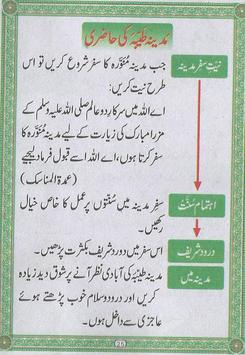 مدینہ طیّبہ کی حاضری
نیتِ سفرِ مدینہ
جب مدینہ مُنَوَّرہ کا سفر شروع کریں تو اس
طرح نیت کریں:
اے اللہ میں سرکارِ دو عالم صلی اللہ علیہ وسلم کے
مزار مبارک کی زیارت کے لیے مدینہ مُنَوَّرہ کا
سفر کرتا ہوں، اے اللہ اسے قبول فرما دیجیے
(عمدۃ المناسک)
اہتمامِ سُنّت
سفرِ مدینہ میں سُنّتوں پر عمل کا خاص خیال
رکھیں۔
درود شریف
اس سفر میں درود شریف بکثرت پڑھیں۔
مدینہ میں
مدینہ طیّبہ کی آبادی نظر آنے پر شوقِ دید زیادہ
کریں اور درود و سلام خوب پڑھتے ہوئے
عاجزی سے داخل ہوں۔